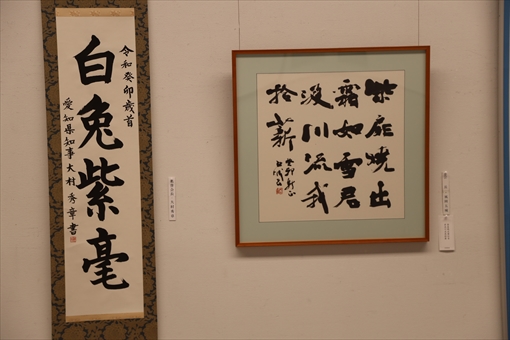 令和癸卯歳首
白兔紫毫
愛知県知事大村秀章書
柴扉暁出
霜如雪君
汲川流我
拾薪